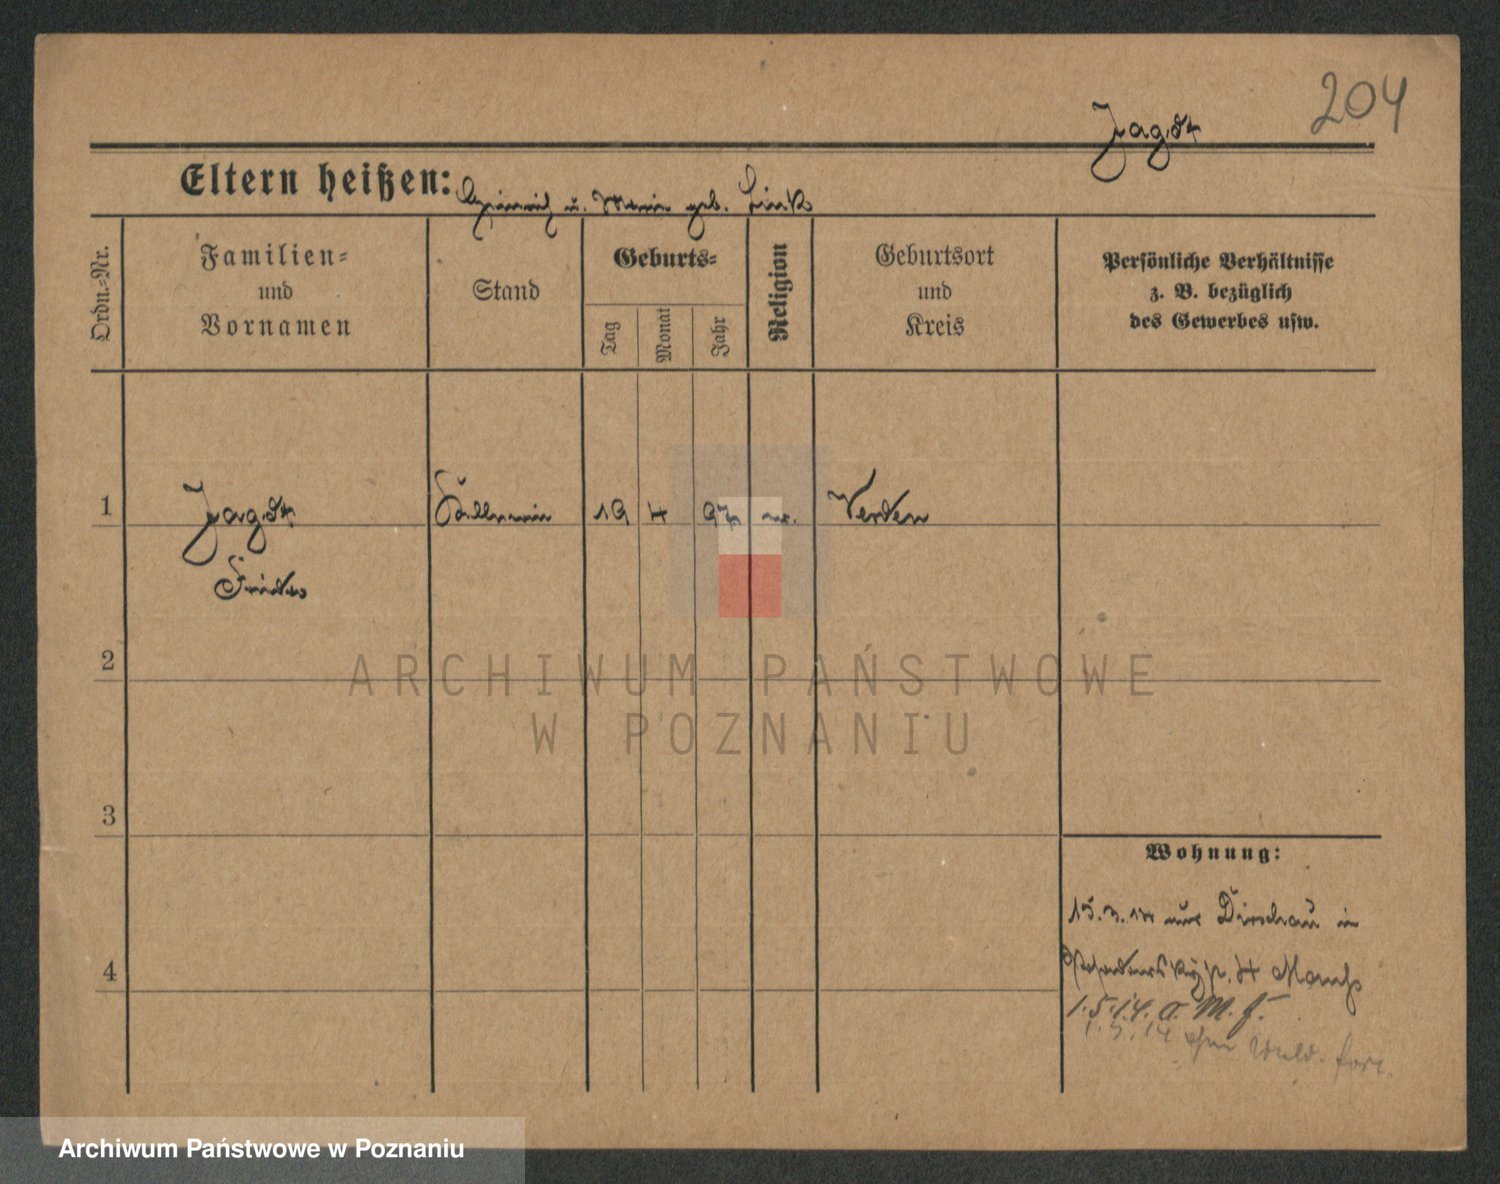 204
Jagst
Eltern heißen: Heinrich u. Marie geb. Link
Ordn.=Nr.
Familien=
und
Vornamen
Stand
Geburts=
Tag
Monat
Jahr
Religion
Geburtsort
und
Kreis
Persönliche Verhältnisse
z. B. bezüglich
des Gewerbes usw.
1
Jagst
Kellnerin
19
4
97
ev.
Verden
Frieda
2
ARCHIWUM PAŃSTWOWE
W POZNANIU
3
Wohnung:
15.3.14 aus Dirschau in
4
1.5.14. a. M. f.
1.5.14 ohne
Archiwum Państwowe w Poznaniu